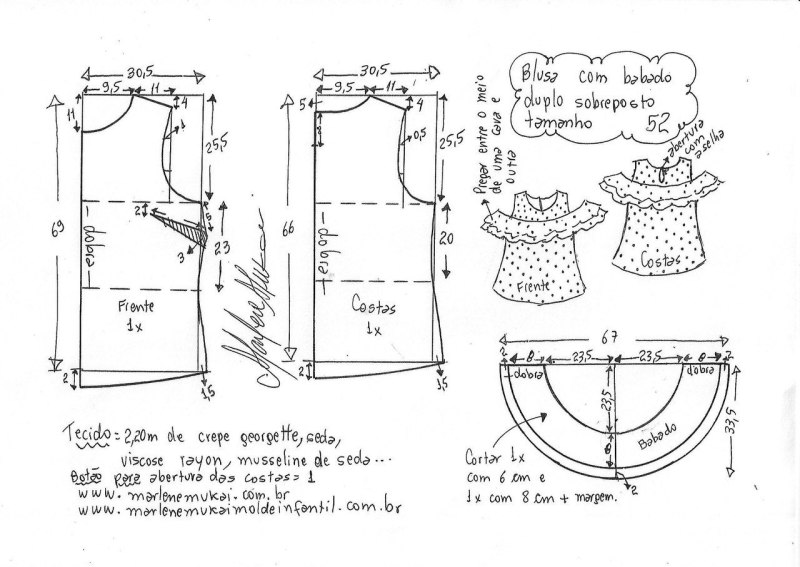 Blusa com babado
duplo sobreposto
tamanho 52
30,5
9,5 11
4
11
1
25,5
69
2
5
dobra
3
23
Frente
1x
2
1,5
30,5
9,5 11
5
4
8
0,5
25,5
66
dobra
20
Costas
1x
2
1,5
Pregar entre o meio
de uma cava e
outra
abertura
com
aselha
Frente
Costas
67
2 8 23,5 23,5 8 2
dobra
dobra
23,5
33,5
8
Babado
2
Cortar 1x
com 6 cm e
1x com 8 cm + margem.
Tecido = 2,20m de crepe georgette, seda,
viscose rayon, musseline de seda...
Botão para abertura das costas = 1
www.marlenemukai.com.br
www.marlenemukaimoldeinfantil.com.br